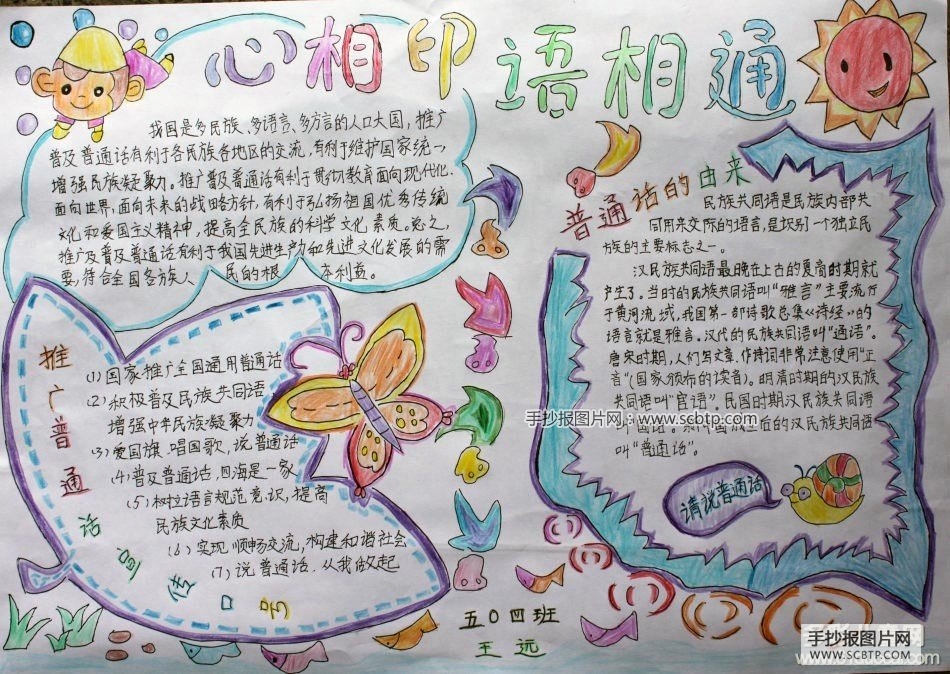 心相印 语相通
我国是多民族、多语言、多方言的人口大国，推广
普及普通话有利于各民族各地区的交流，有利于维护国家统一，
增强民族凝聚力。推广普及普通话有利于贯彻教育面向现代化，
面向世界，面向未来的战略方针，有利于弘扬祖国优秀传统
文化和爱国主义精神，提高全民族的科学文化素质。总之，
推广及普及普通话有利于我国先进生产力和先进文化发展的需
要，符合全国各族人民的根本利益。
普通话的由来
民族共同语是民族内部共
同用来交际的语言，是识别一个独立民
族的主要标志之一。
汉民族共同语最晚在上古的夏商时期就
产生了。当时的民族共同语叫“雅言”主要流行
于黄河流域，我国第一部诗歌总集《诗经》的
语言就是雅言。汉代的民族共同语叫“通语”。
唐宋时期，人们写文章、作诗词非常注意使用“正
音”（国家颁布的读音）。明清时期的汉民族
共同语叫“官话”。民国时期汉民族共同语
后的汉民族共同语
叫“普通话”。
请说普通话
推广普通话宣传口号
(1) 国家推广全国通用普通话
(2) 积极普及民族共同语
增强中华民族凝聚力
(3) 爱国旗，唱国歌，说普通话
(4) 普及普通话，四海是一家
(5) 树立语言规范意识，提高
民族文化素质
(6) 实现顺畅交流，构建和谐社会
(7) 说普通话．从我做起
五〇四班
王远
手抄报图片网：www.scbtp.com
手抄报图片网
WWW.SCBTP.COM